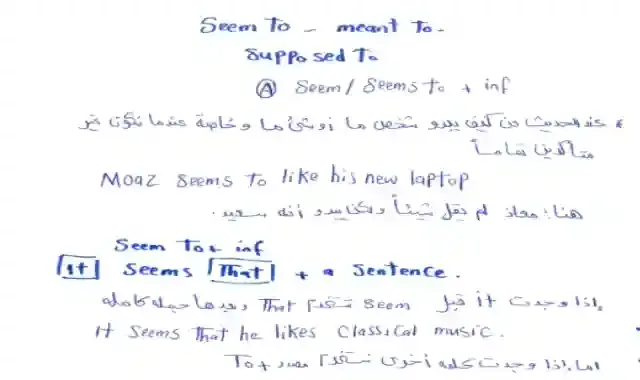 Seem To - meant To.
Supposed To
Ⓐ Seem / Seems To + inf
* عند الحديث عن كيف يبدو شخص ما أو شئ ما وخاصة عندما نكون غير
متأكدين تماماً
Moaz seems to like his new laptop
هنا: معاذ لم يقل شيئاً ولكن يبدو أنه سعيد.
Seem To + inf
It Seems That + a Sentence.
إذا وجدت it قبل Seem نستخدم That وبعدها جملة كاملة
It Seems That he likes Classical music.
اما إذا وجدت كلمة أخرى نستخدم مصدر + To